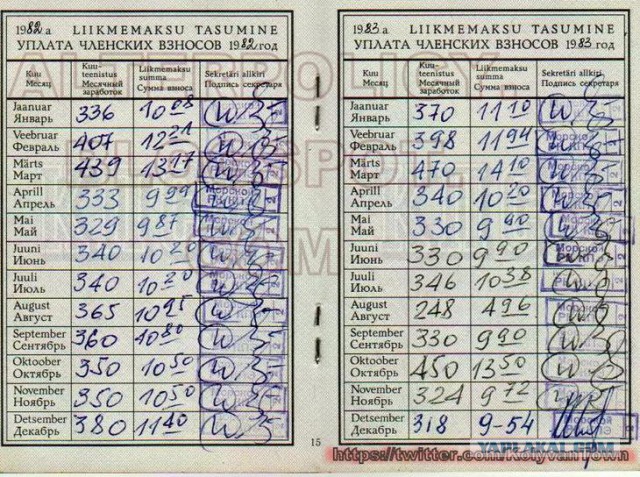 1982 a. LIIKMEMAKSU TASUMINE
УПЛАТА ЧЛЕНСКИХ ВЗНОСОВ 1982 год
Kuu Kuuteenistus Liikmemaksu summa Sekretäri allkiri
Месяц Месячный заработок Сумма взноса Подпись секретаря
Jaanuar
Январь 336 10 08
Veebruar
Февраль 407 12 21
Märts
Март 439 13 17
Aprill
Апрель 333 9 99 Морской
Mai
Май 329 9 87
Juuni
Июнь 340 10 20
Juuli
Июль 340 10 20
August
Август 365 10 95
September
Сентябрь 360 10 80
Oktoober
Октябрь 350 10 50
November
Ноябрь 350 10 50
Detsember
Декабрь 380 11 40
15
1983 a. LIIKMEMAKSU TASUMINE
УПЛАТА ЧЛЕНСКИХ ВЗНОСОВ 1983 год
Kuu Kuuteenistus Liikmemaksu summa Sekretäri allkiri
Месяц Месячный заработок Сумма взноса Подпись секретаря
Jaanuar
Январь 370 11 10
Veebruar
Февраль 398 11 94 Морской
Märts
Март 470 14 10
Aprill
Апрель 340 10 20 Морской
Mai
Май 330 9 90
Juuni
Июнь 330 9 90 Морской
Juuli
Июль 346 10 38
August
Август 248 4 96
September
Сентябрь 330 9 90
Oktoober
Октябрь 450 13 50
November
Ноябрь 324 9 72
Detsember
Декабрь 318 9-54
YAPLAKAL.COM
https://twitter.com/KolyvanTown